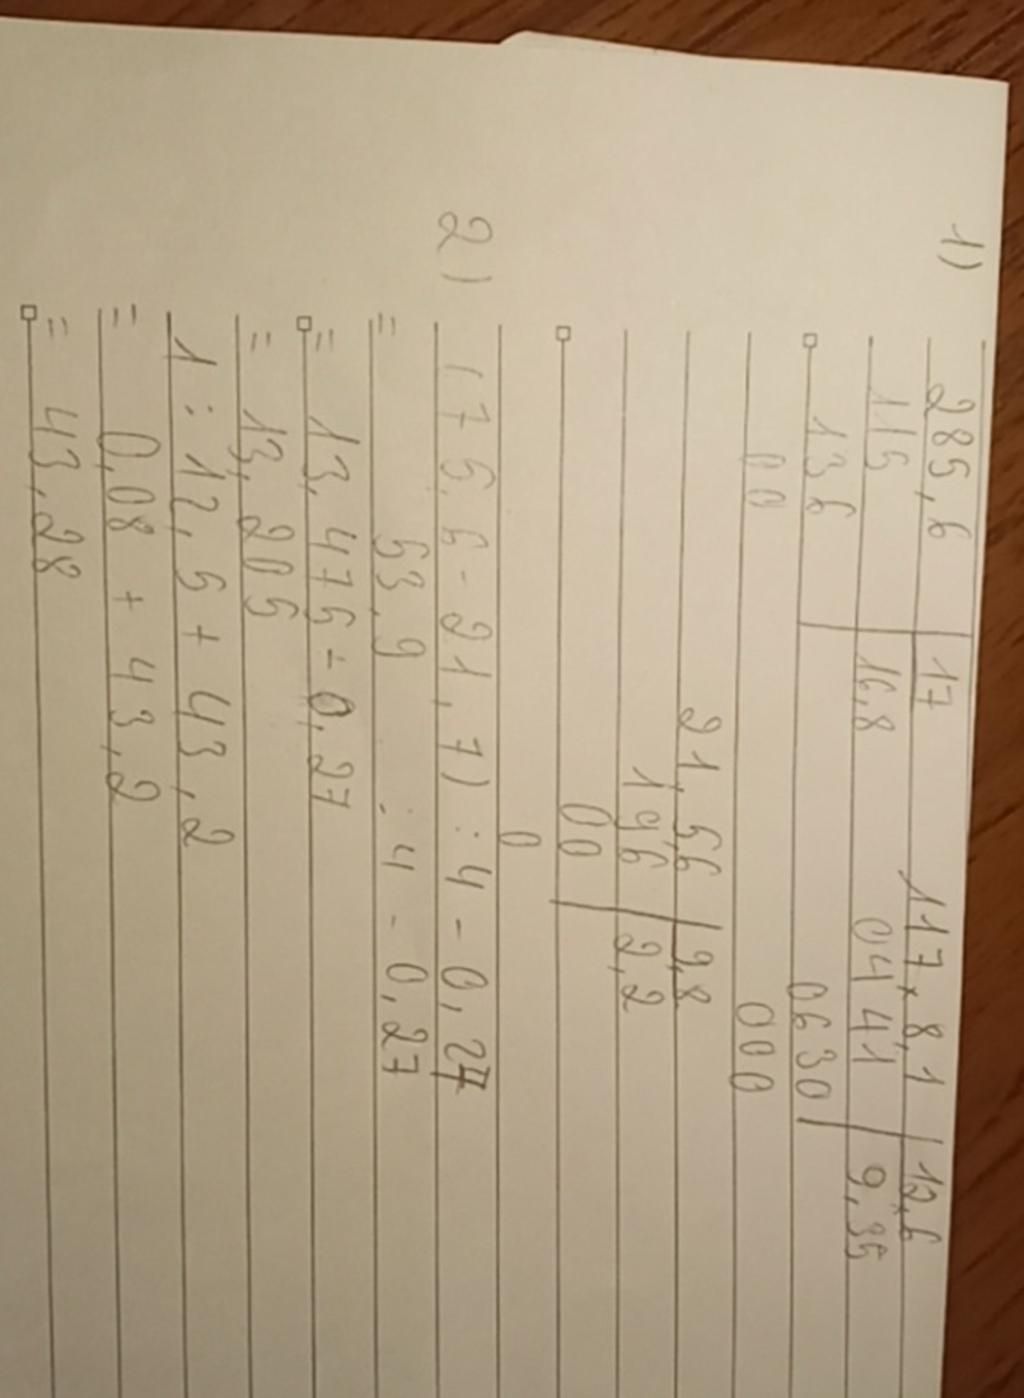 1) 285,6 | 17 117,81 | 12,6
115 | 16,8 0441 | 9,35
136 0630
00 000
21,56 | 9,8
196 | 2,2
00
0
2) (75,6-21,7):4-0,27
= 53,9 : 4 - 0,27
= 13,475-0,27
= 13,205
1:12,5+43,2
= 0,08 + 43,2
= 43,28